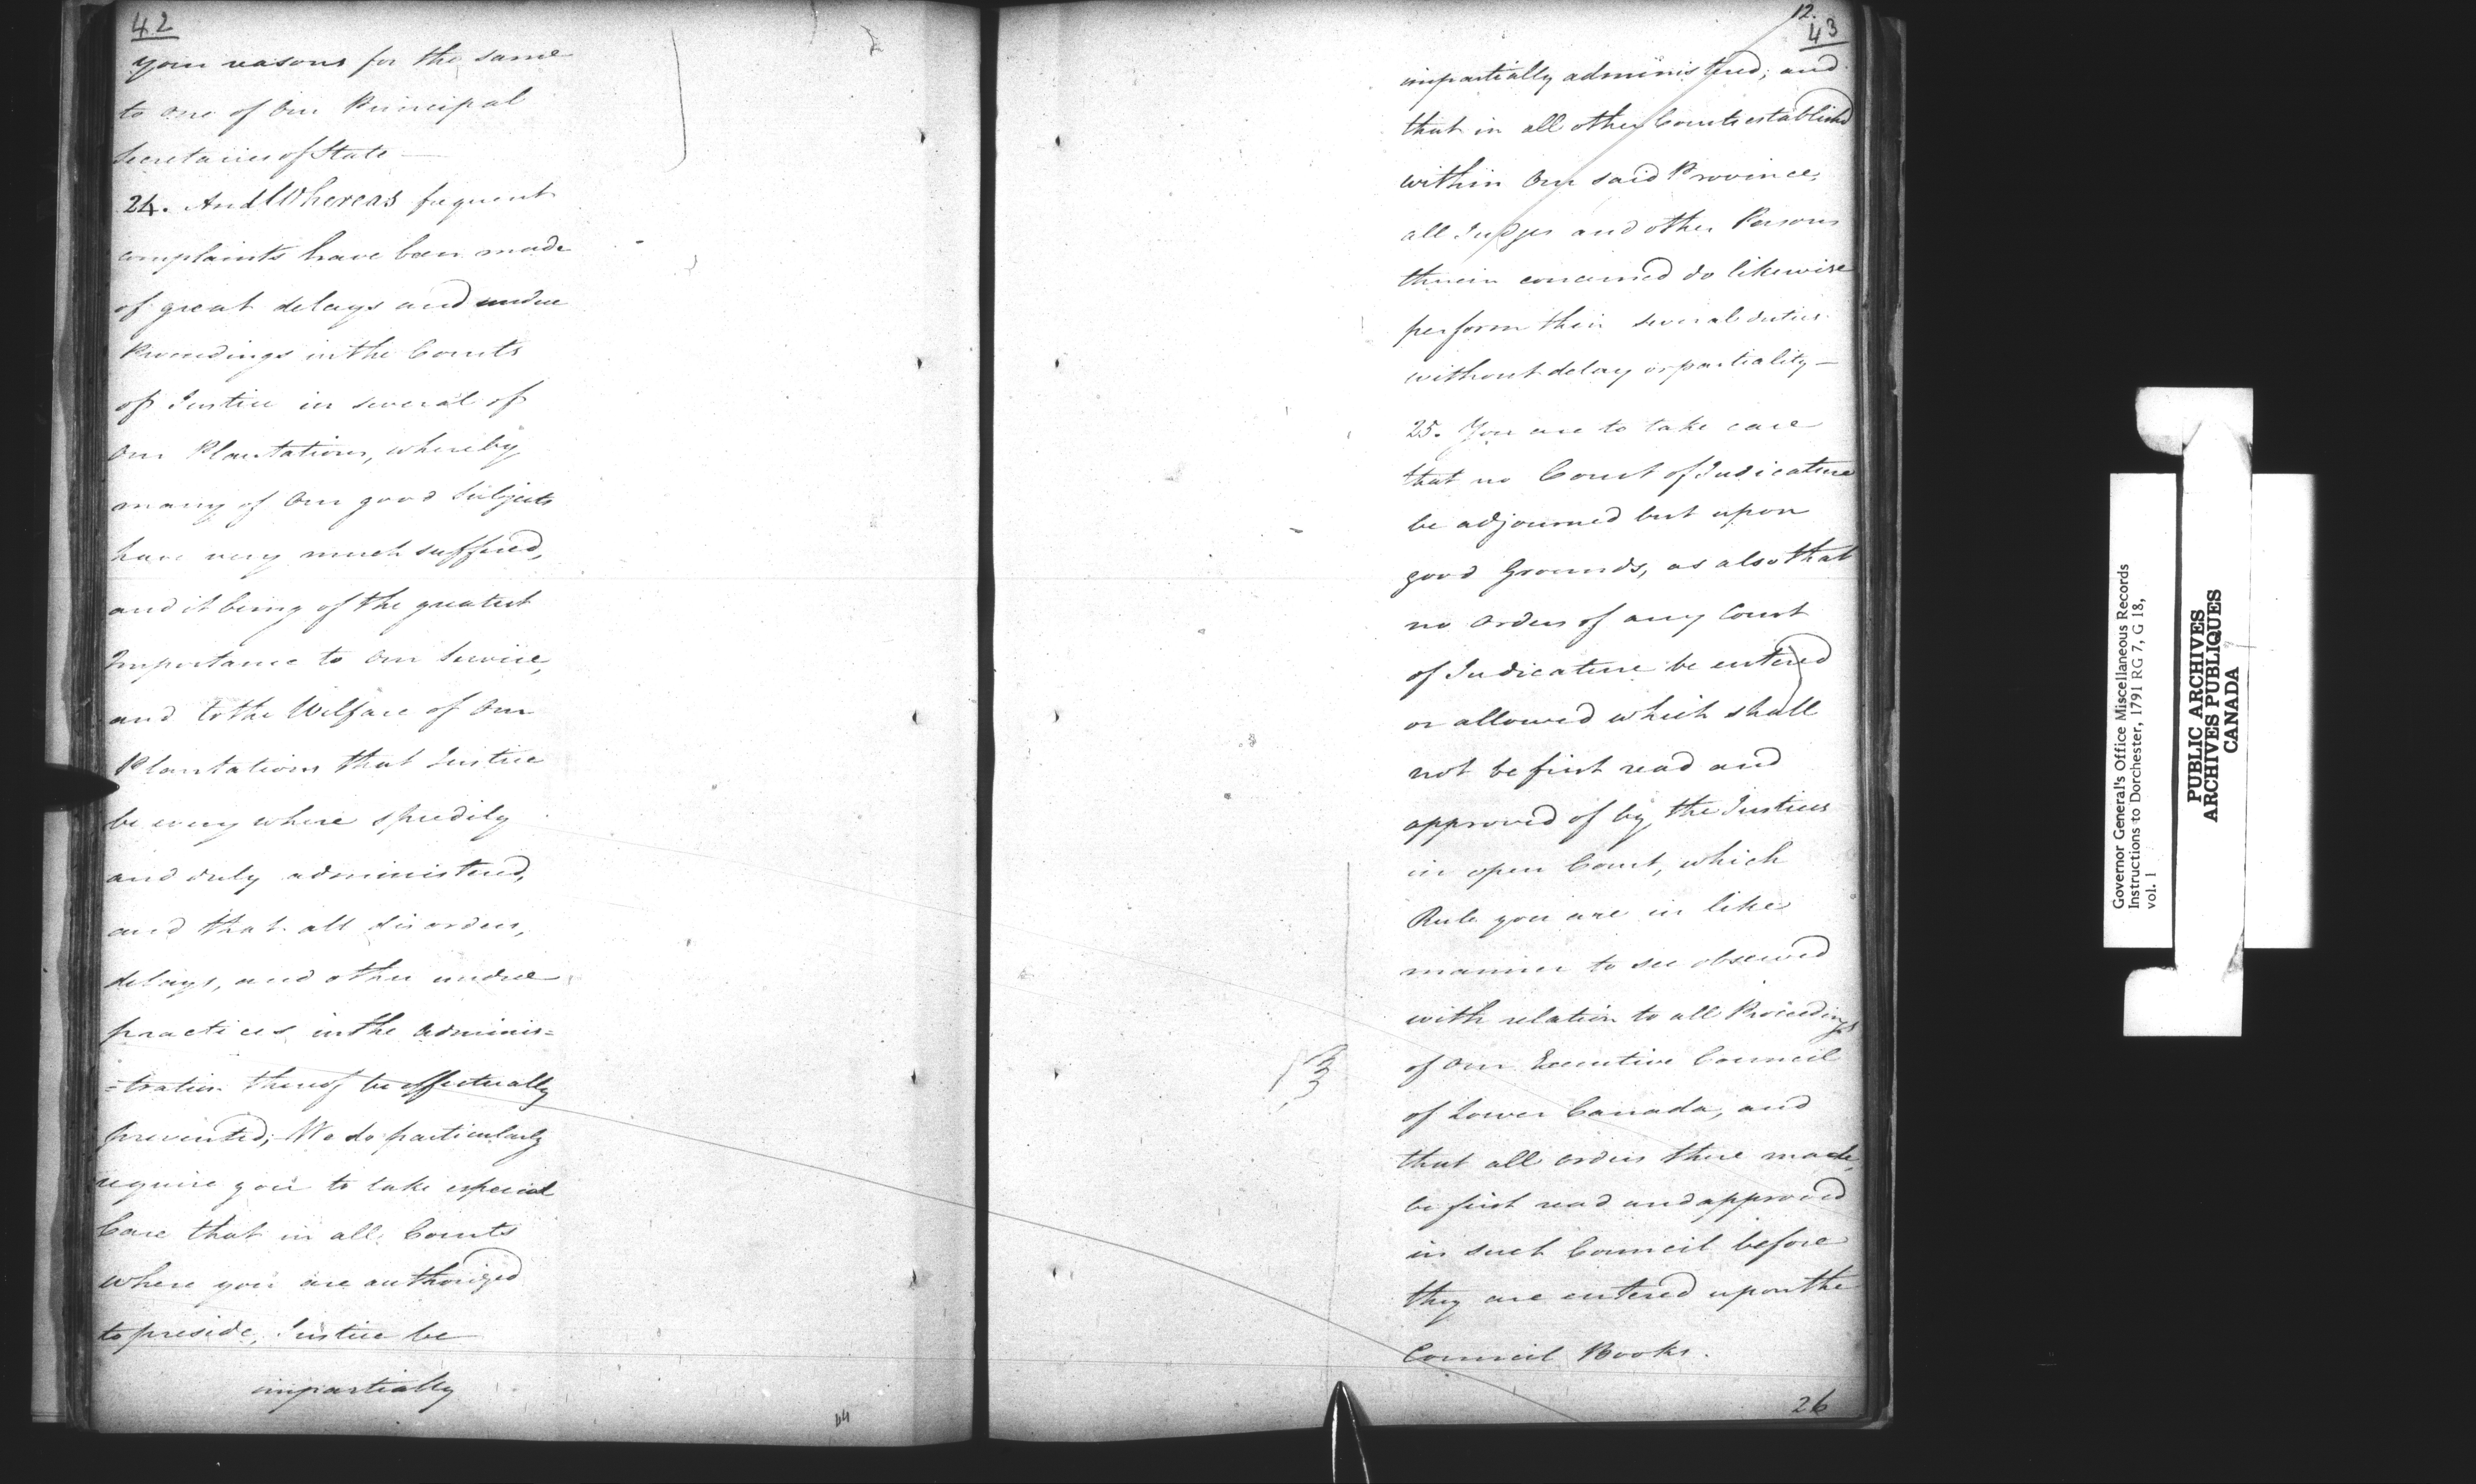 42
your reasons for the same
to one of Our Principal
Secretaries of State —
24. And Whereas frequent
complaints have been made
of great delays and undue
Proceedings in the Courts
of Justice in several of
Our Plantations, whereby
many of Our good Subjects
have very much suffered,
and it being of the greatest
Importance to Our Service,
and to the Welfare of Our
Plantations that Justice
be every where speedily
and duly administered,
and that all disorders,
delays, and other undue
practices in the adminis=
=tration thereof be effectually
prevented; We do particularly
require you to take especial
Care that in all Courts
where you are authorized
to preside, Justice be
impartially
44
12.
43
impartially administered; and
that in all other Courts established
within Our said Province,
all Judges and other Persons
therein concerned do likewise
perform their several duties
without delay or partiality —
25. You are to take care
that no Court of Judicature
be adjourned but upon
good Grounds, as also that
no orders of any Court
of Judicature be entered
or allowed which shall
not be first read and
approved of by the Justices
in open Court, which
Rule you are in like
manner to see observed
with relation to all Proceedings
of Our Executive Council
of Lower Canada, and
that all orders there made,
be first read and approved
in such Council before
they are entered upon the
Council Books.
26
Governor General's Office Miscellaneous Records
Instructions to Dorchester, 1791 RG 7, G 18,
vol. 1
PUBLIC ARCHIVES
ARCHIVES PUBLIQUES
CANADA